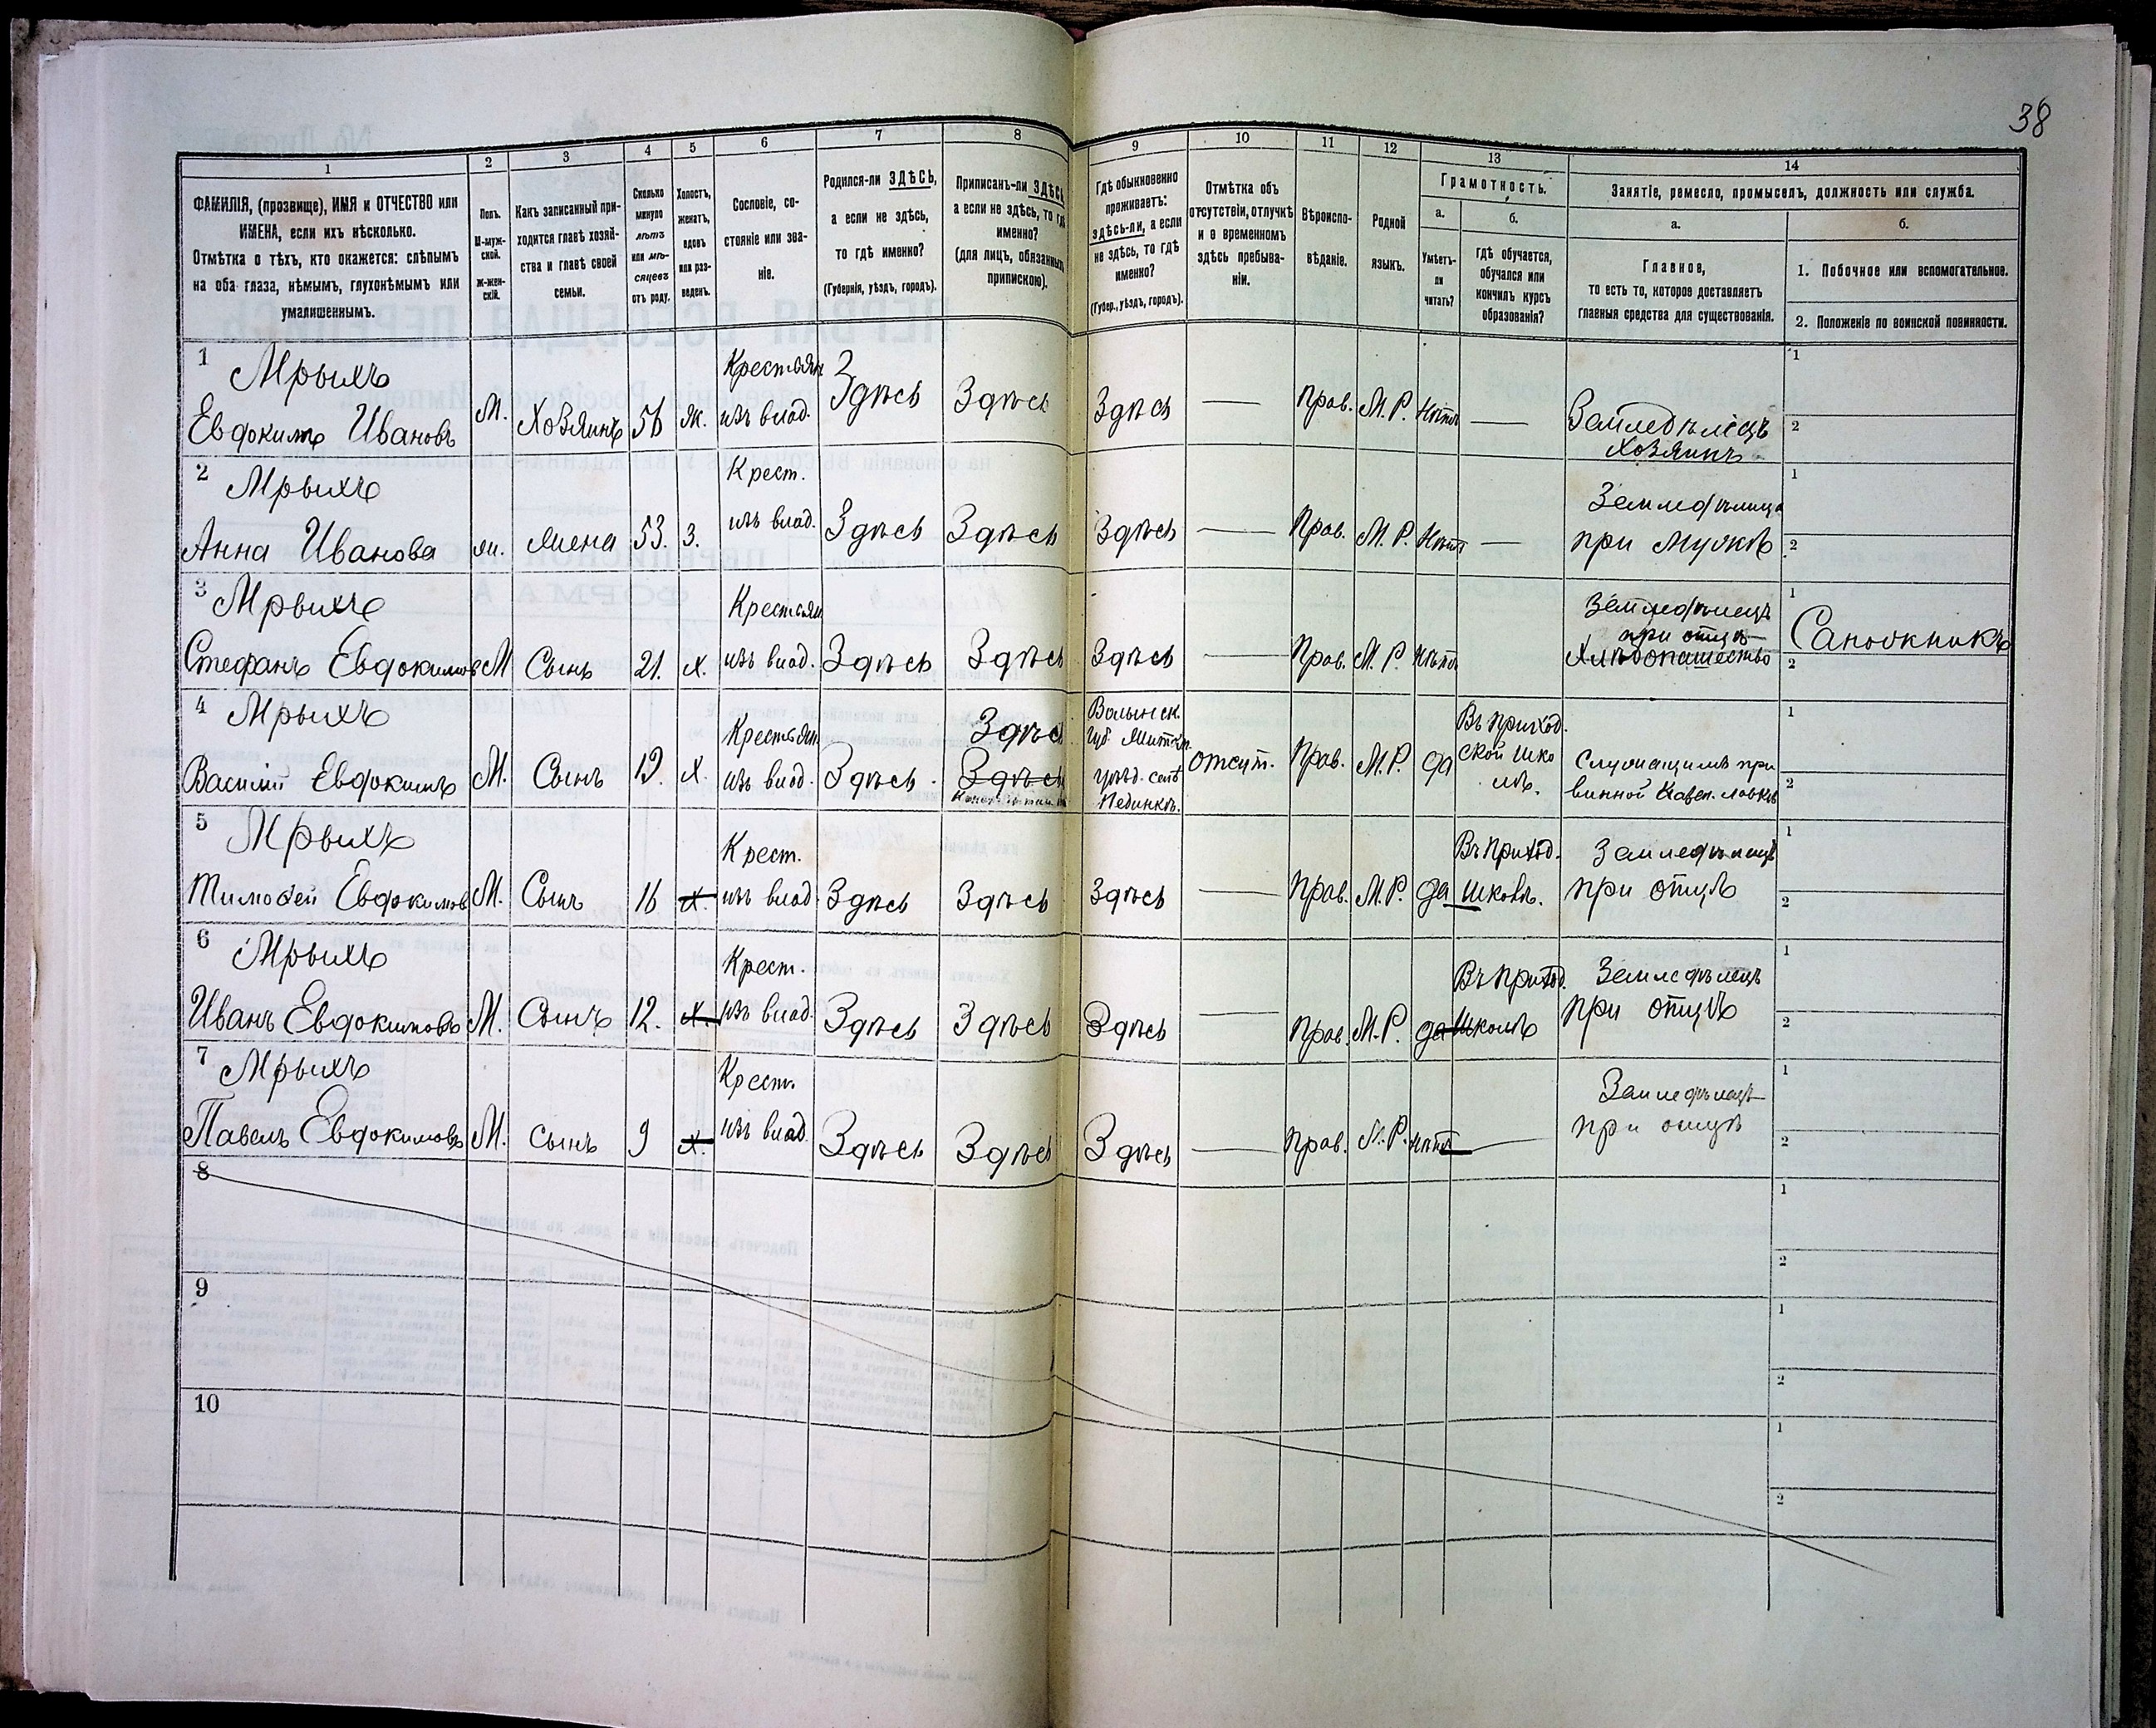 38
1 2 3 4 5 6 7 8 9 10 11 12 13 14
ФАМИЛІЯ, (прозвище), ИМЯ и ОТЧЕСТВО или
ИМЕНА, если ихъ нѣсколько.
Отмѣтка о тѣхъ, кто окажется: слѣпымъ
на оба глаза, нѣмымъ, глухонѣмымъ или
умалишеннымъ.
Полъ.
М-муж-
ской.
Ж-жен-
скій.
Какъ записанный при-
ходится главѣ хозяй-
ства и главѣ своей
семьи.
Сколько
минуло
лѣтъ
или мѣ-
сяцевъ
отъ роду.
Холостъ,
женатъ,
вдовъ
или раз-
веденъ.
Сословіе, со-
стояніе или зва-
ніе.
Родился-ли ЗДѢСЬ,
а если не здѣсь,
то гдѣ именно?
(Губернія, уѣздъ, городъ).
Приписанъ-ли ЗДѢСЬ,
а если не здѣсь, то гдѣ
именно?
(для лицъ, обязанныхъ
припискою).
Гдѣ обыкновенно
проживаетъ:
здѣсь-ли, а если
не здѣсь, то гдѣ
именно?
(Губер., уѣздъ, городъ).
Отмѣтка объ
отсутствіи, отлучкѣ
и о временномъ
здѣсь пребыва-
ніи.
Вѣроиспо-
вѣданіе.
Родной
языкъ.
Грамотность.
а.
Умѣетъ-
ли
читать?
б.
Гдѣ обучается,
обучался или
кончилъ курсъ
образованія?
Занятіе, ремесло, промыселъ, должность или служба.
а.
Главное,
то есть то, которое доставляетъ
главныя средства для существованія.
б.
1. Побочное или вспомогательное.
2. Положеніе по воинской повинности.
1 Мрыхъ Крестьян 1
Евдокимъ Ивановъ М. Хозяинъ 56 ж. изъ влад. Здѣсь Здѣсь Здѣсь — Прав. М. Р. Нѣтъ — Земледѣлецъ 2
Хозяинъ
2 Мрыхъ Крест. Земледѣлица 1
Анна Иванова ж. жена 53. З. изъ влад. Здѣсь Здѣсь Здѣсь — Прав. М. Р. Нѣтъ — при мужѣ 2
3 Мрыхъ Крестьян Земледѣлецъ 1
при отцѣ Сапожникъ
Стефанъ Евдокимовъ М Сынъ 21. х. изъ влад. Здѣсь Здѣсь Здѣсь — Прав. М. Р. Нѣтъ Хлѣбопашество 2
4 Мрыхъ Здѣсь Волынск. Въ приход. 1
Крестьян губ. Житом. ской шко
Василій Евдокимъ М. Сынъ 19. х. изъ влад. Здѣсь. Здѣсь уѣзд. селѣ отсут. Прав. М. Р. да лѣ. Служащимъ при
винной Казен. лавкѣ 2
5 Мрыхъ Крест. Въ Приход. Земледѣлецъ 1
Тимофей Евдокимов М. Сынъ 16 х. изъ влад. Здѣсь Здѣсь Здѣсь — Прав. М. Р. да школѣ. при отцѣ 2
6 Мрыхъ Крест. Въ Приход. Земледѣлецъ 1
Иванъ Евдокимовъ М. Сынъ 12. х. изъ влад. Здѣсь Здѣсь Здѣсь — Прав. М. Р. да Школѣ при отцѣ 2
7 Мрыхъ Крест. Земледѣлецъ 1
Павелъ Евдокимовъ М. сынъ 9 х. изъ влад. Здѣсь Здѣсь Здѣсь — Прав. М. Р. нѣтъ — при отцѣ 2
8 1
2
9 1
2
10 1
2